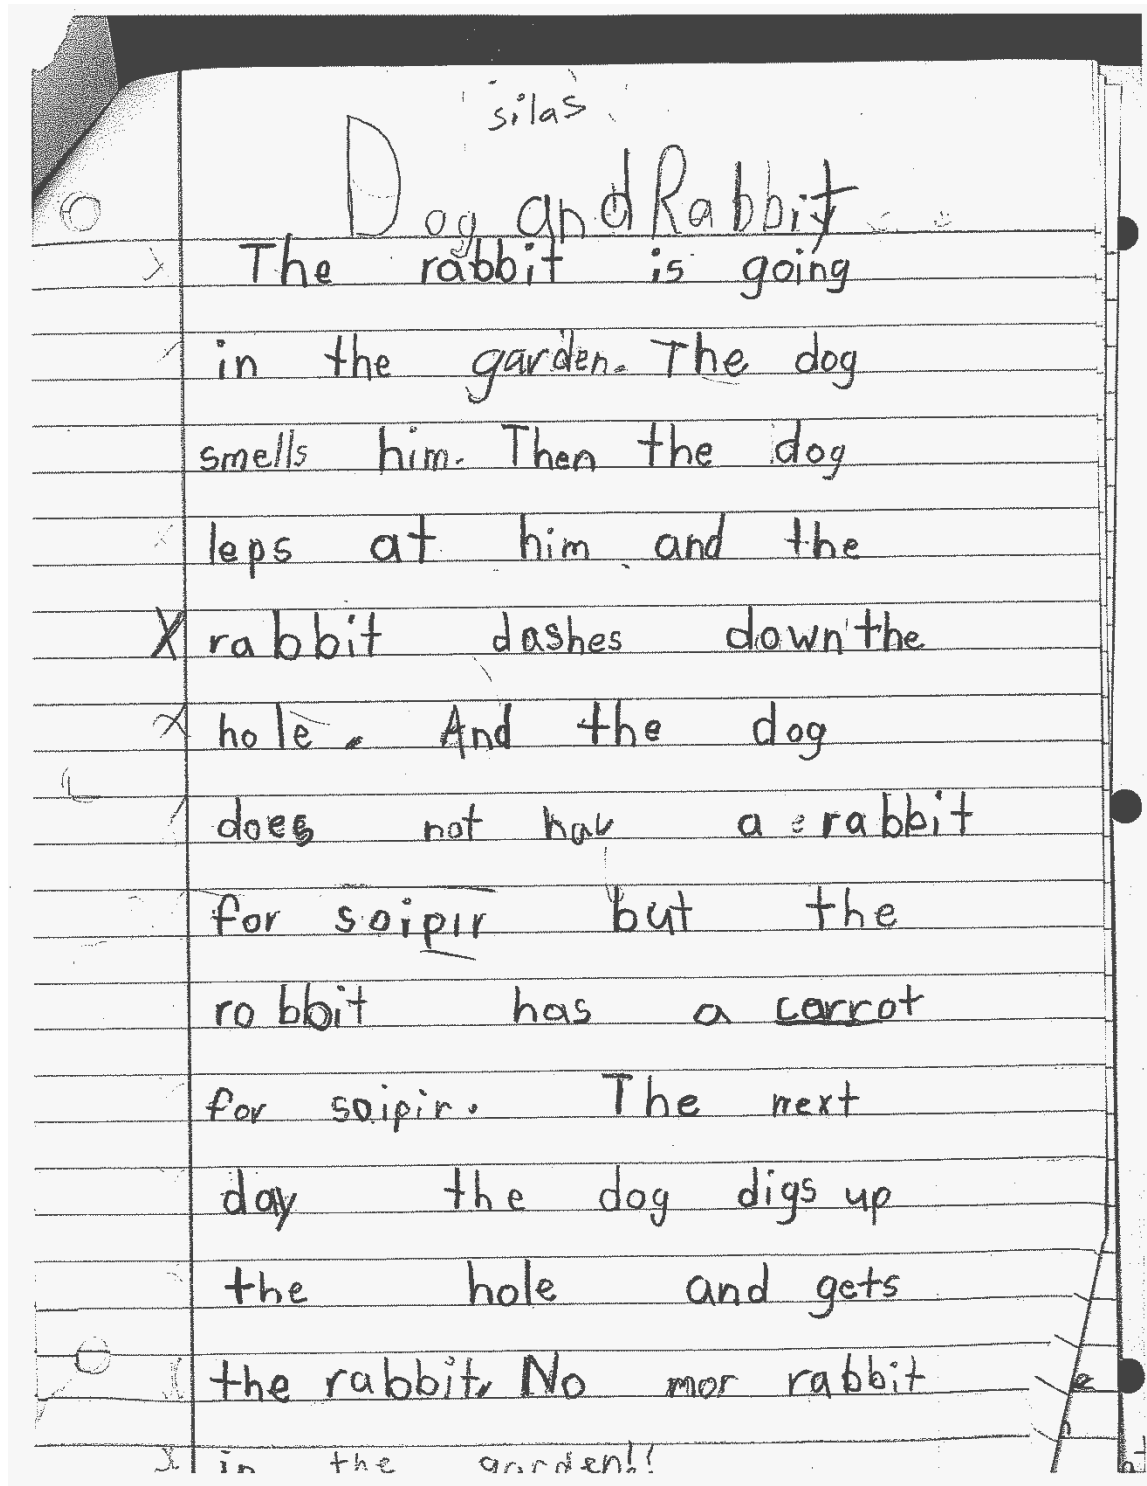 silas
Dog and Rabbit
The rabbit is going
in the garden. The dog
smells him. Then the dog
leps at him and the
X rabbit dashes down the
hole. And the dog
does not hav a rabbit
for soipir but the
robbit has a carrot
for soipir. The next
day the dog digs up
the hole and gets
the rabbit. No mor rabbit
in the garden!!